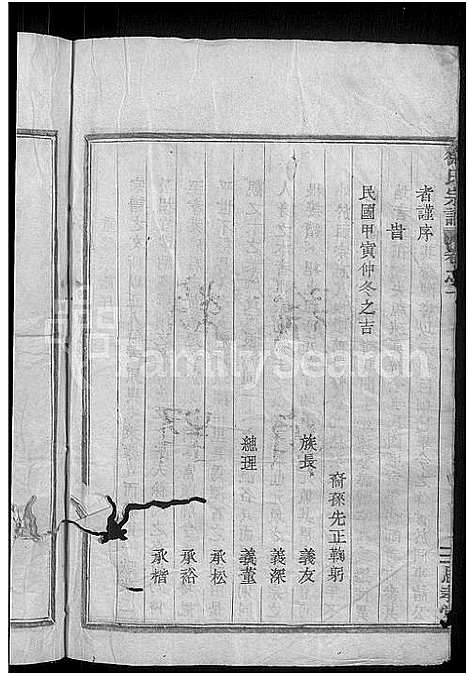 者謹序
旹
民國甲寅仲冬之吉
裔孫先正鞠躬
族長 義友
義深
總理 義董
承松
承裕
承楷
氏宗譜
卷之一
FamilySearch